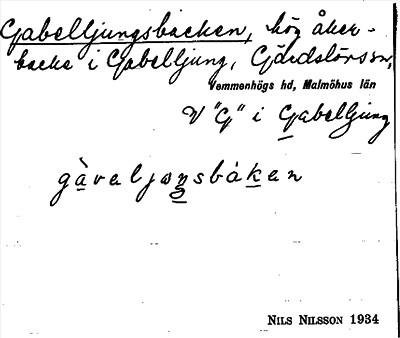 Gabelljungsbacken, hög åker-
backe i Gabelljung, Gärdslövs sn,
Vemmenhögs hd, Malmöhus län
V "G" i Gabelljung
gàveljɷŋsbáken
NILS NILSSON 1934